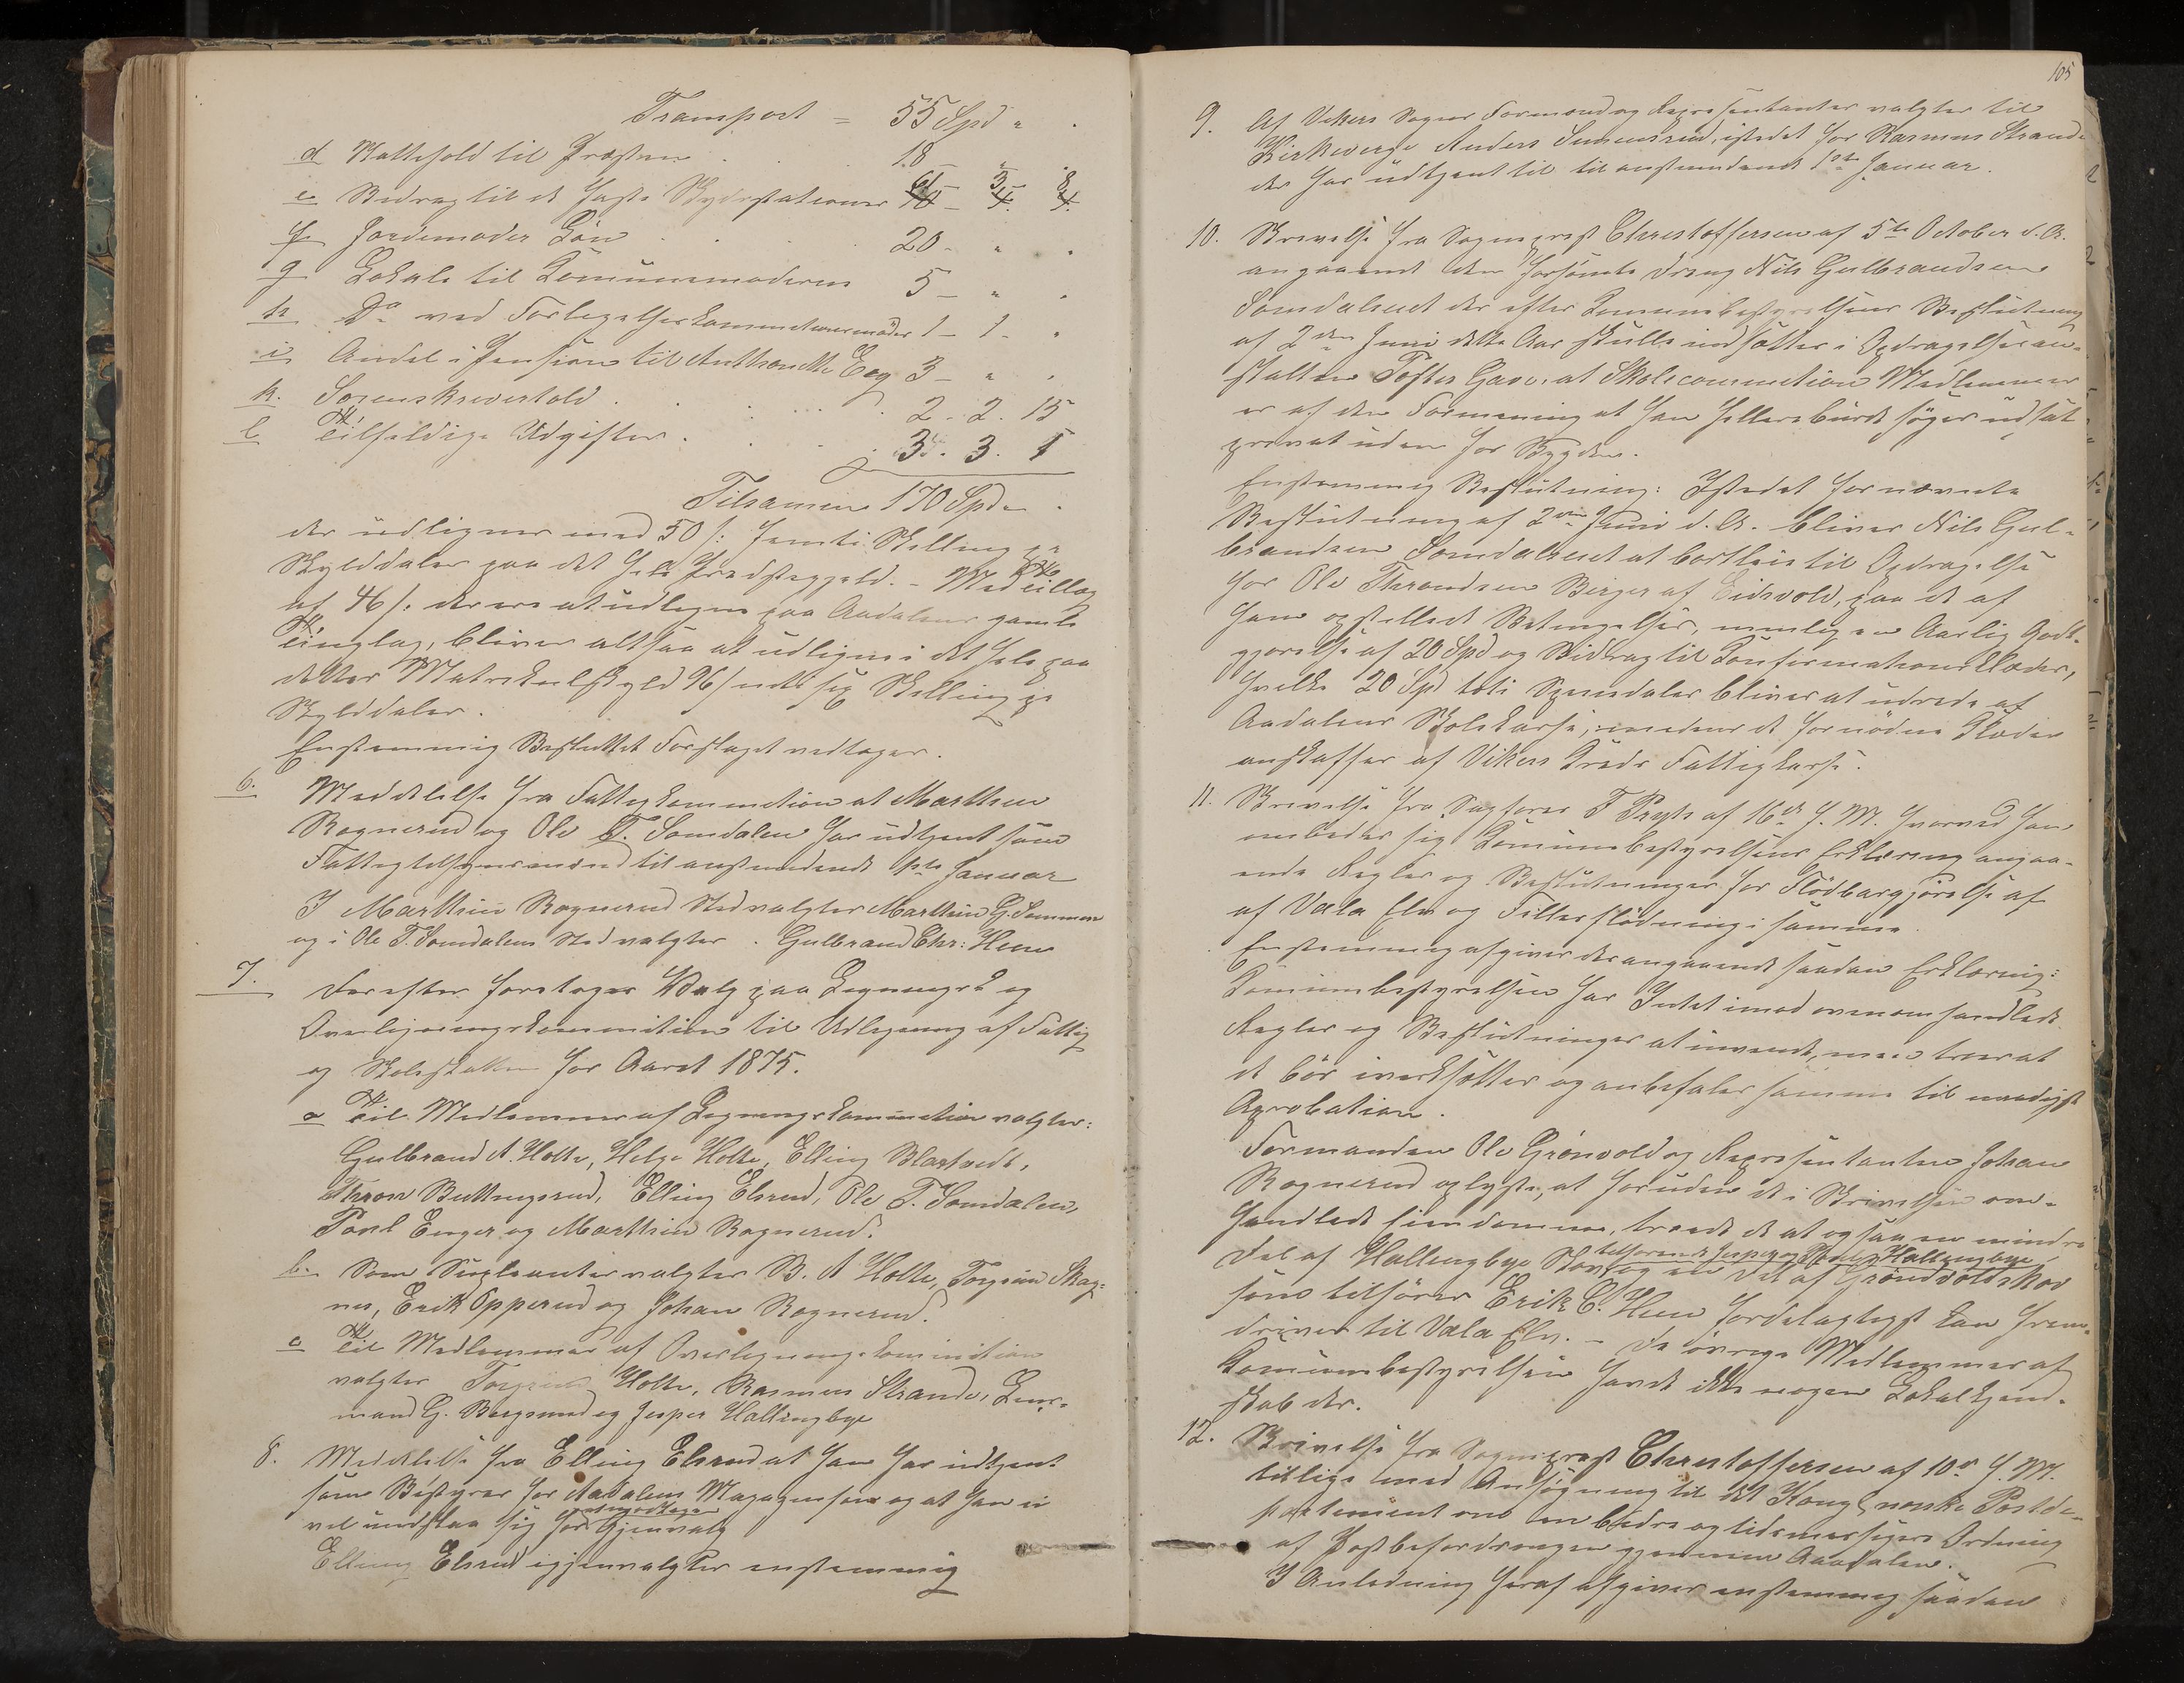 Transport = 55 Spd " .
d Skattehold til Præsten . . 18 - " .
e Bidrag til de faste Skydsstationer 61 - 3 - 8
f Jordemoder Løn . . . . 20 - " .
g Lokale til Kommunemøderne 5 - " .
h Do ved Forligelseskommissionsmøder 1 - 1 - "
i Andel i Pension til Anthonette Eeg 3 - " .
k. Sorenskrivertold . . . . 2 - 2. 15
l Tilfældige Udgifter . . . . 3. 3. 1
Tilsammen 170 Spd " .
der udlignes med 50 /: femti Skilling pr
Skylddaler paa det hele Præstegjeld. - Med Tillæg
af 46 /: der ere at udlignes paa Aadalens gamle
Thinglag, bliver altsaa at udligne i det hele paa
dettes Matrikulskyld 96 / nitti sex Skilling pr
Skylddaler.
Enstemmig Besluttet Forslaget vedtages.
6. Meddelelse fra Fattigkommission at Marthin
Rognerud og Ole T. Somdalen har udtjent som
Fattigtilsynsmænd til anstundende 1ste Januar
I Marthin Rognerud Sted valgtes Marthin G. Sommen
og i Ole T. Somdalens Sted valgtes . Gulbrand Chr: Heen
7. Derefter foretoges Valg paa Lignings & og
Overligningskommission til Udligning af Fattig
og Skoleskatten for Aaret 1875.
a Til Medlemmer af Ligningskommission valgtes:
Gulbrand A. Holte, Helge Holte, Elling Blartvedt,
Thron Buttingsrud, Elling Elsrud, Ole T. Somdalen,
Poul Enger og Marthin Rognerud.
b. Som Supleanter valgtes B. A Holte, Torgrim Skag-
nes, Erik Opperud og Johan Rognerud.
c Til Medlemmer af Overligningskommission
valgtes Torgrim Holte, Rasmus Strande, Lens-
mand G. Bergsund og Jesper Hallingbye
8. Meddelelse fra Elling Elsrud at han har udtjent
som Bestyrer for Aadalens Magazin som og at han ei
modtage
vil undslaa sig for Gjenvalg
Elling Elsrud igjenvalgtes enstemmig
105
9. Af Vikers Sogns Formænd og Repræsentanter valgtes til
Kirkeverge Anders Simensrud, istedet for Rasmus Strande
der har udtjent til til anstundende 1ste Januar.
10. Skrivelse fra Sogneprest Christoffersen af 5te October d. A.
angaaende den forsømte Dreng Nils Gulbrandsen
Somdalseiet der efter Kommunebestyrelsens Beslutning
af 2den Juni dette Aar skulle indsættes i Opdragelsesan-
stalten Toftes Gave, at Skolecommission Medlemmer
er af den Formening at han hellere burde søges udsat
privat uden for Bygden.
Enstemmig Beslutning: Istedet for nævnte
Beslutning af 2den Juni d. A. bliver Nils Gul-
brandsen Somdalseiet at bortleie til Opdragelse
hos Ole Throndsen Berger af Eidsvold, paa de af
ham opstillede Betingelser, nemlig en Aarlig Godt-
gjørelse af 20 Spd og Bidrag til Konfirmationsklæder,
hvilke 20 Spd toti Speciedaler bliver at udrede af
Aadalens Skolekasse, medens de fornødne Klæder
anskaffes af Vikers Kreds Fattigkasse.
11. Skrivelse fra Sagfører T Prytz af 16de f. M. hvorved han
ombeder sig Kommunebestyrelsens Erklæring angaa-
ende Regler og Beslutninger for Flødbargjørelse af
af Vala Elv og Fellesflødning i samme.
Enstemmig afgives der angaaende saadan Erklæring:
Kommunebestyrelsen har Intet imod ovenomhandlede
Regler og Beslutninger at invende, men troer at
de bør iverksættes og anbefaler samme til naadigst
Aprobation.
Formanden Ole Grønvold og Repræsentanten Johan
Rognerud oplyste, at foruden de i Skrivelsen om-
handlede Eiendomme, troede de at ogsaa en mindre
tilhørende Jesper og Hallingbye
Del af Hallingbye Skov og en Del af Grøndvoldskov
som tilhører Erik C. Heen fordelagtigst kan frem-
drives til Vala Elv. - De øvrige Medlemmer af
Kommunebestyrelsen havde ikke nogen Lokalkjend-
skab der.
12. Skrivelse fra Sogneprest Christoffersen af 10de f. M.
tillige med Ansøgning til det Kongl. norske Postde-
partement om en bedre og tidsmessigere Ordning
af Postbefordringen gjennem Aadalen.
I Anledning heraf afgives enstemmig saadan